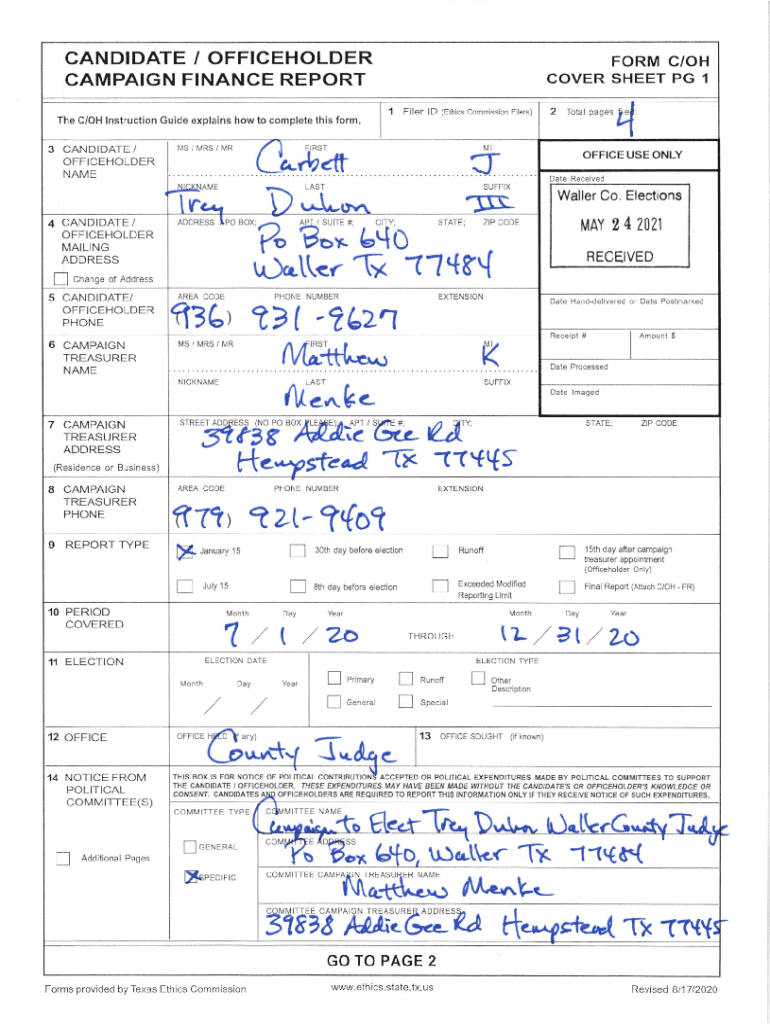 CANDIDATE / OFFICEHOLDER
CAMPAIGN FINANCE REPORT
FORM C/OH
COVER SHEET PG 1
The C/OH Instruction Guide explains how to complete this form.
1 Filer ID (Ethics Commission Filers)
2 Total pages filed:
4
3 CANDIDATE /
OFFICEHOLDER
NAME
MS / MRS / MR FIRST MI
Carbett J
NICKNAME LAST SUFFIX
Trey Duhon III
OFFICE USE ONLY
Date Received
Waller Co. Elections
MAY 24 2021
RECEIVED
4 CANDIDATE /
OFFICEHOLDER
MAILING
ADDRESS
Change of Address
ADDRESS / PO BOX; APT / SUITE #; CITY; STATE; ZIP CODE
Po Box 640
Waller Tx 77484
5 CANDIDATE/
OFFICEHOLDER
PHONE
AREA CODE PHONE NUMBER EXTENSION
(936) 931-9627
Date Hand-delivered or Date Postmarked
Receipt # Amount $
Date Processed
Date Imaged
6 CAMPAIGN
TREASURER
NAME
MS / MRS / MR FIRST MI
Matthew K
NICKNAME LAST SUFFIX
Menke
7 CAMPAIGN
TREASURER
ADDRESS
(Residence or Business)
STREET ADDRESS (NO PO BOX PLEASE); APT / SUITE #; CITY; STATE; ZIP CODE
39838 Addie Gee Rd
Hempstead TX 77445
8 CAMPAIGN
TREASURER
PHONE
AREA CODE PHONE NUMBER EXTENSION
(979) 921-9409
9 REPORT TYPE
X January 15 30th day before election Runoff 15th day after campaign
treasurer appointment
(Officeholder Only)
July 15 8th day before election Exceeded Modified
Reporting Limit
Final Report (Attach C/OH - FR)
10 PERIOD
COVERED
Month Day Year Month Day Year
7 / 1 / 20 THROUGH 12 / 31 / 20
11 ELECTION
ELECTION DATE ELECTION TYPE
Month Day Year
/ /
Primary Runoff Other
Description
General Special
12 OFFICE
OFFICE HELD (if any)
County Judge
13 OFFICE SOUGHT (if known)
14 NOTICE FROM
POLITICAL
COMMITTEE(S)
Additional Pages
THIS BOX IS FOR NOTICE OF POLITICAL CONTRIBUTIONS ACCEPTED OR POLITICAL EXPENDITURES MADE BY POLITICAL COMMITTEES TO SUPPORT
THE CANDIDATE / OFFICEHOLDER. THESE EXPENDITURES MAY HAVE BEEN MADE WITHOUT THE CANDIDATE'S OR OFFICEHOLDER'S KNOWLEDGE OR
CONSENT. CANDIDATES AND OFFICEHOLDERS ARE REQUIRED TO REPORT THIS INFORMATION ONLY IF THEY RECEIVE NOTICE OF SUCH EXPENDITURES.
COMMITTEE TYPE
GENERAL
X SPECIFIC
COMMITTEE NAME
Campaign to Elect Trey Duhon Waller County Judge
COMMITTEE ADDRESS
Po Box 640, Waller Tx 77484
COMMITTEE CAMPAIGN TREASURER NAME
Matthew Menke
COMMITTEE CAMPAIGN TREASURER ADDRESS
39838 Addie Gee Rd Hempstead Tx 77445
GO TO PAGE 2
Forms provided by Texas Ethics Commission www.ethics.state.tx.us Revised 8/17/2020